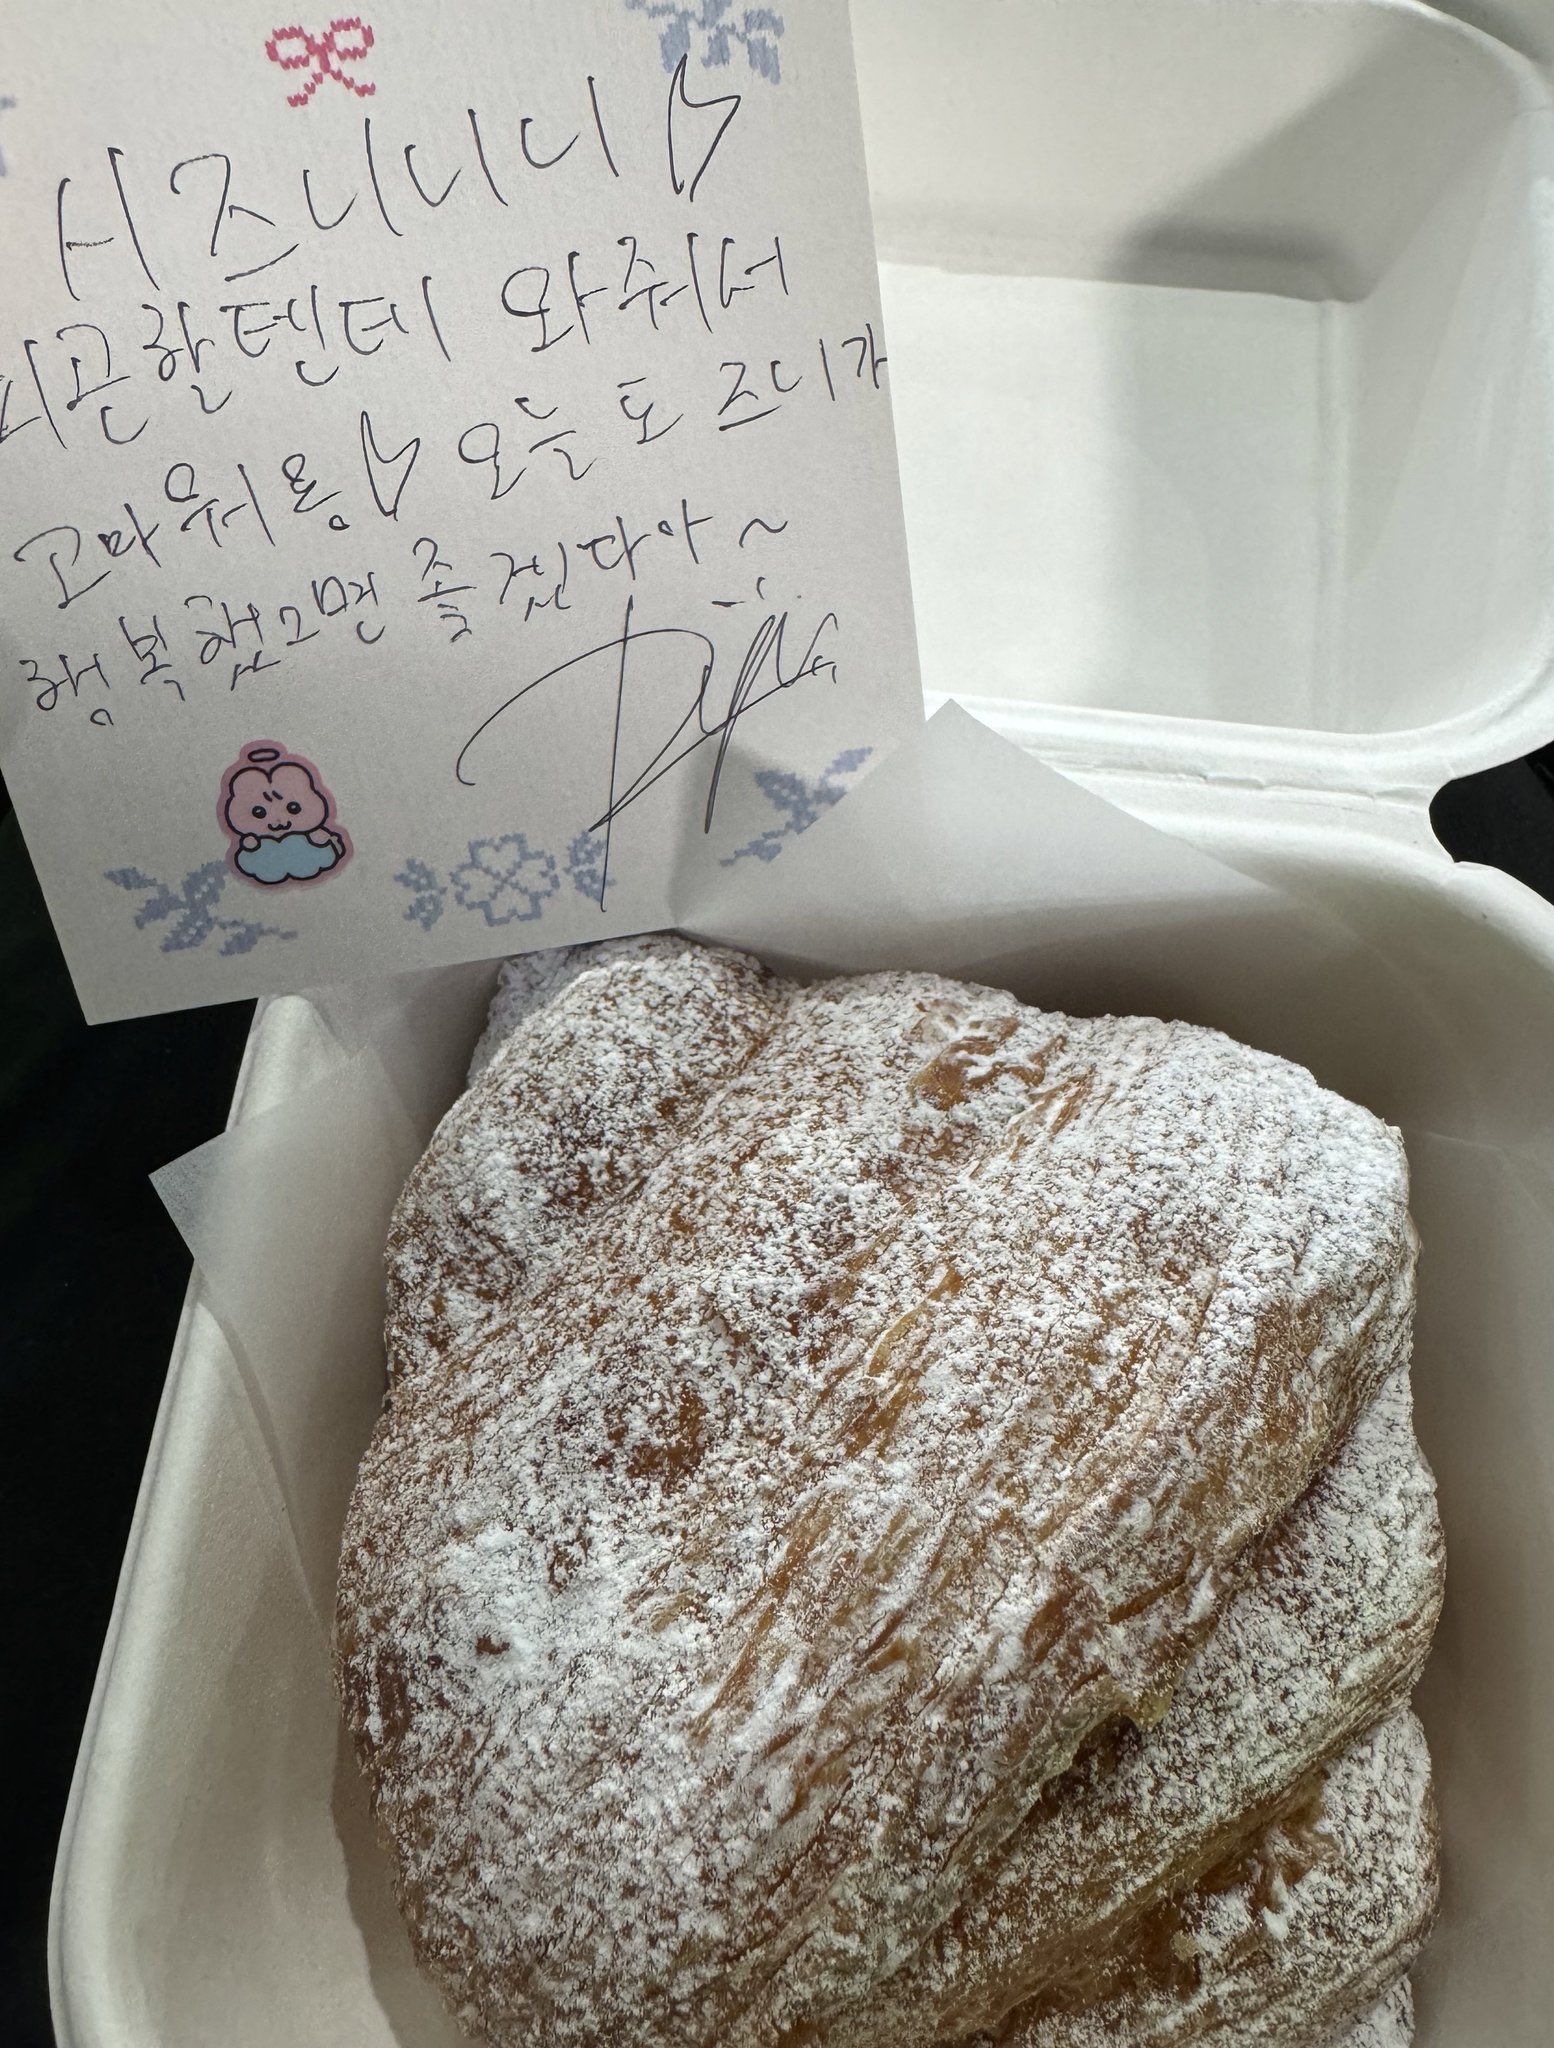 시즈니니니
피곤할텐데 와줘서
고마워용 오늘도 즈니가
행복했으면 좋겠다아~